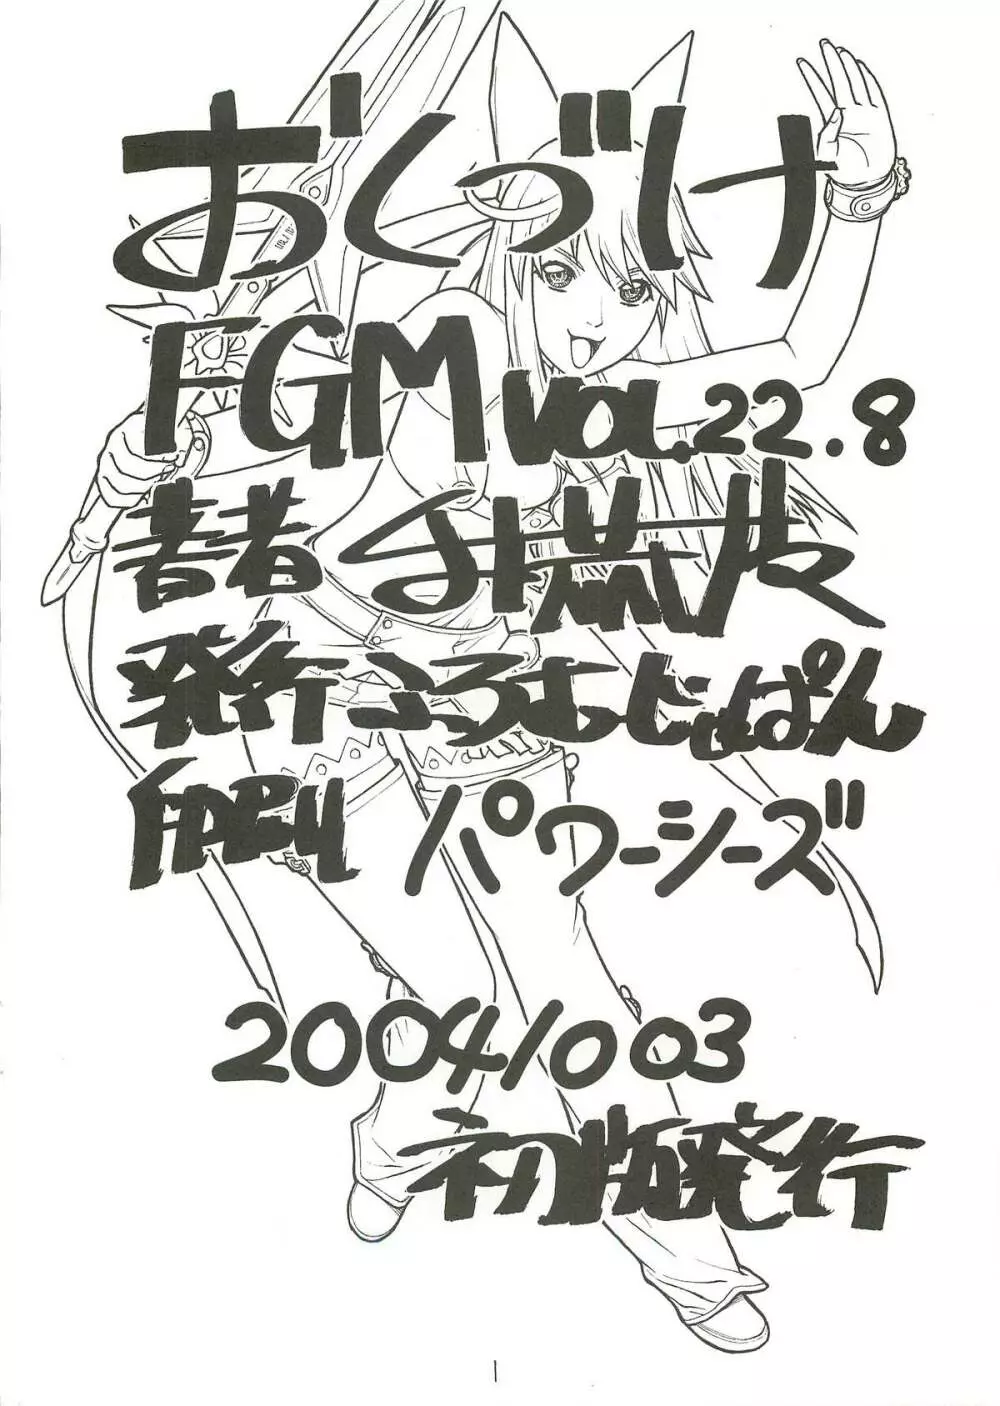 おくづけ
FGM VOL.22.8
著者 外荒波
発行 ふろむじゃぱん
印刷 パワーシーズ
2004/10 03
初版発行
1